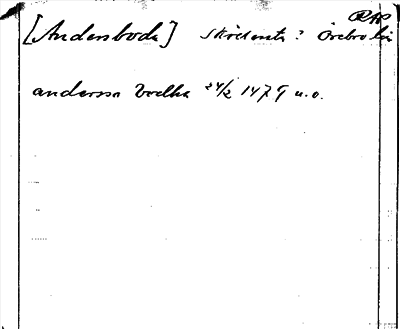 RAP
[Andersboda] ? Örebro län
anderssa bodha 24/2 1479 u.o.